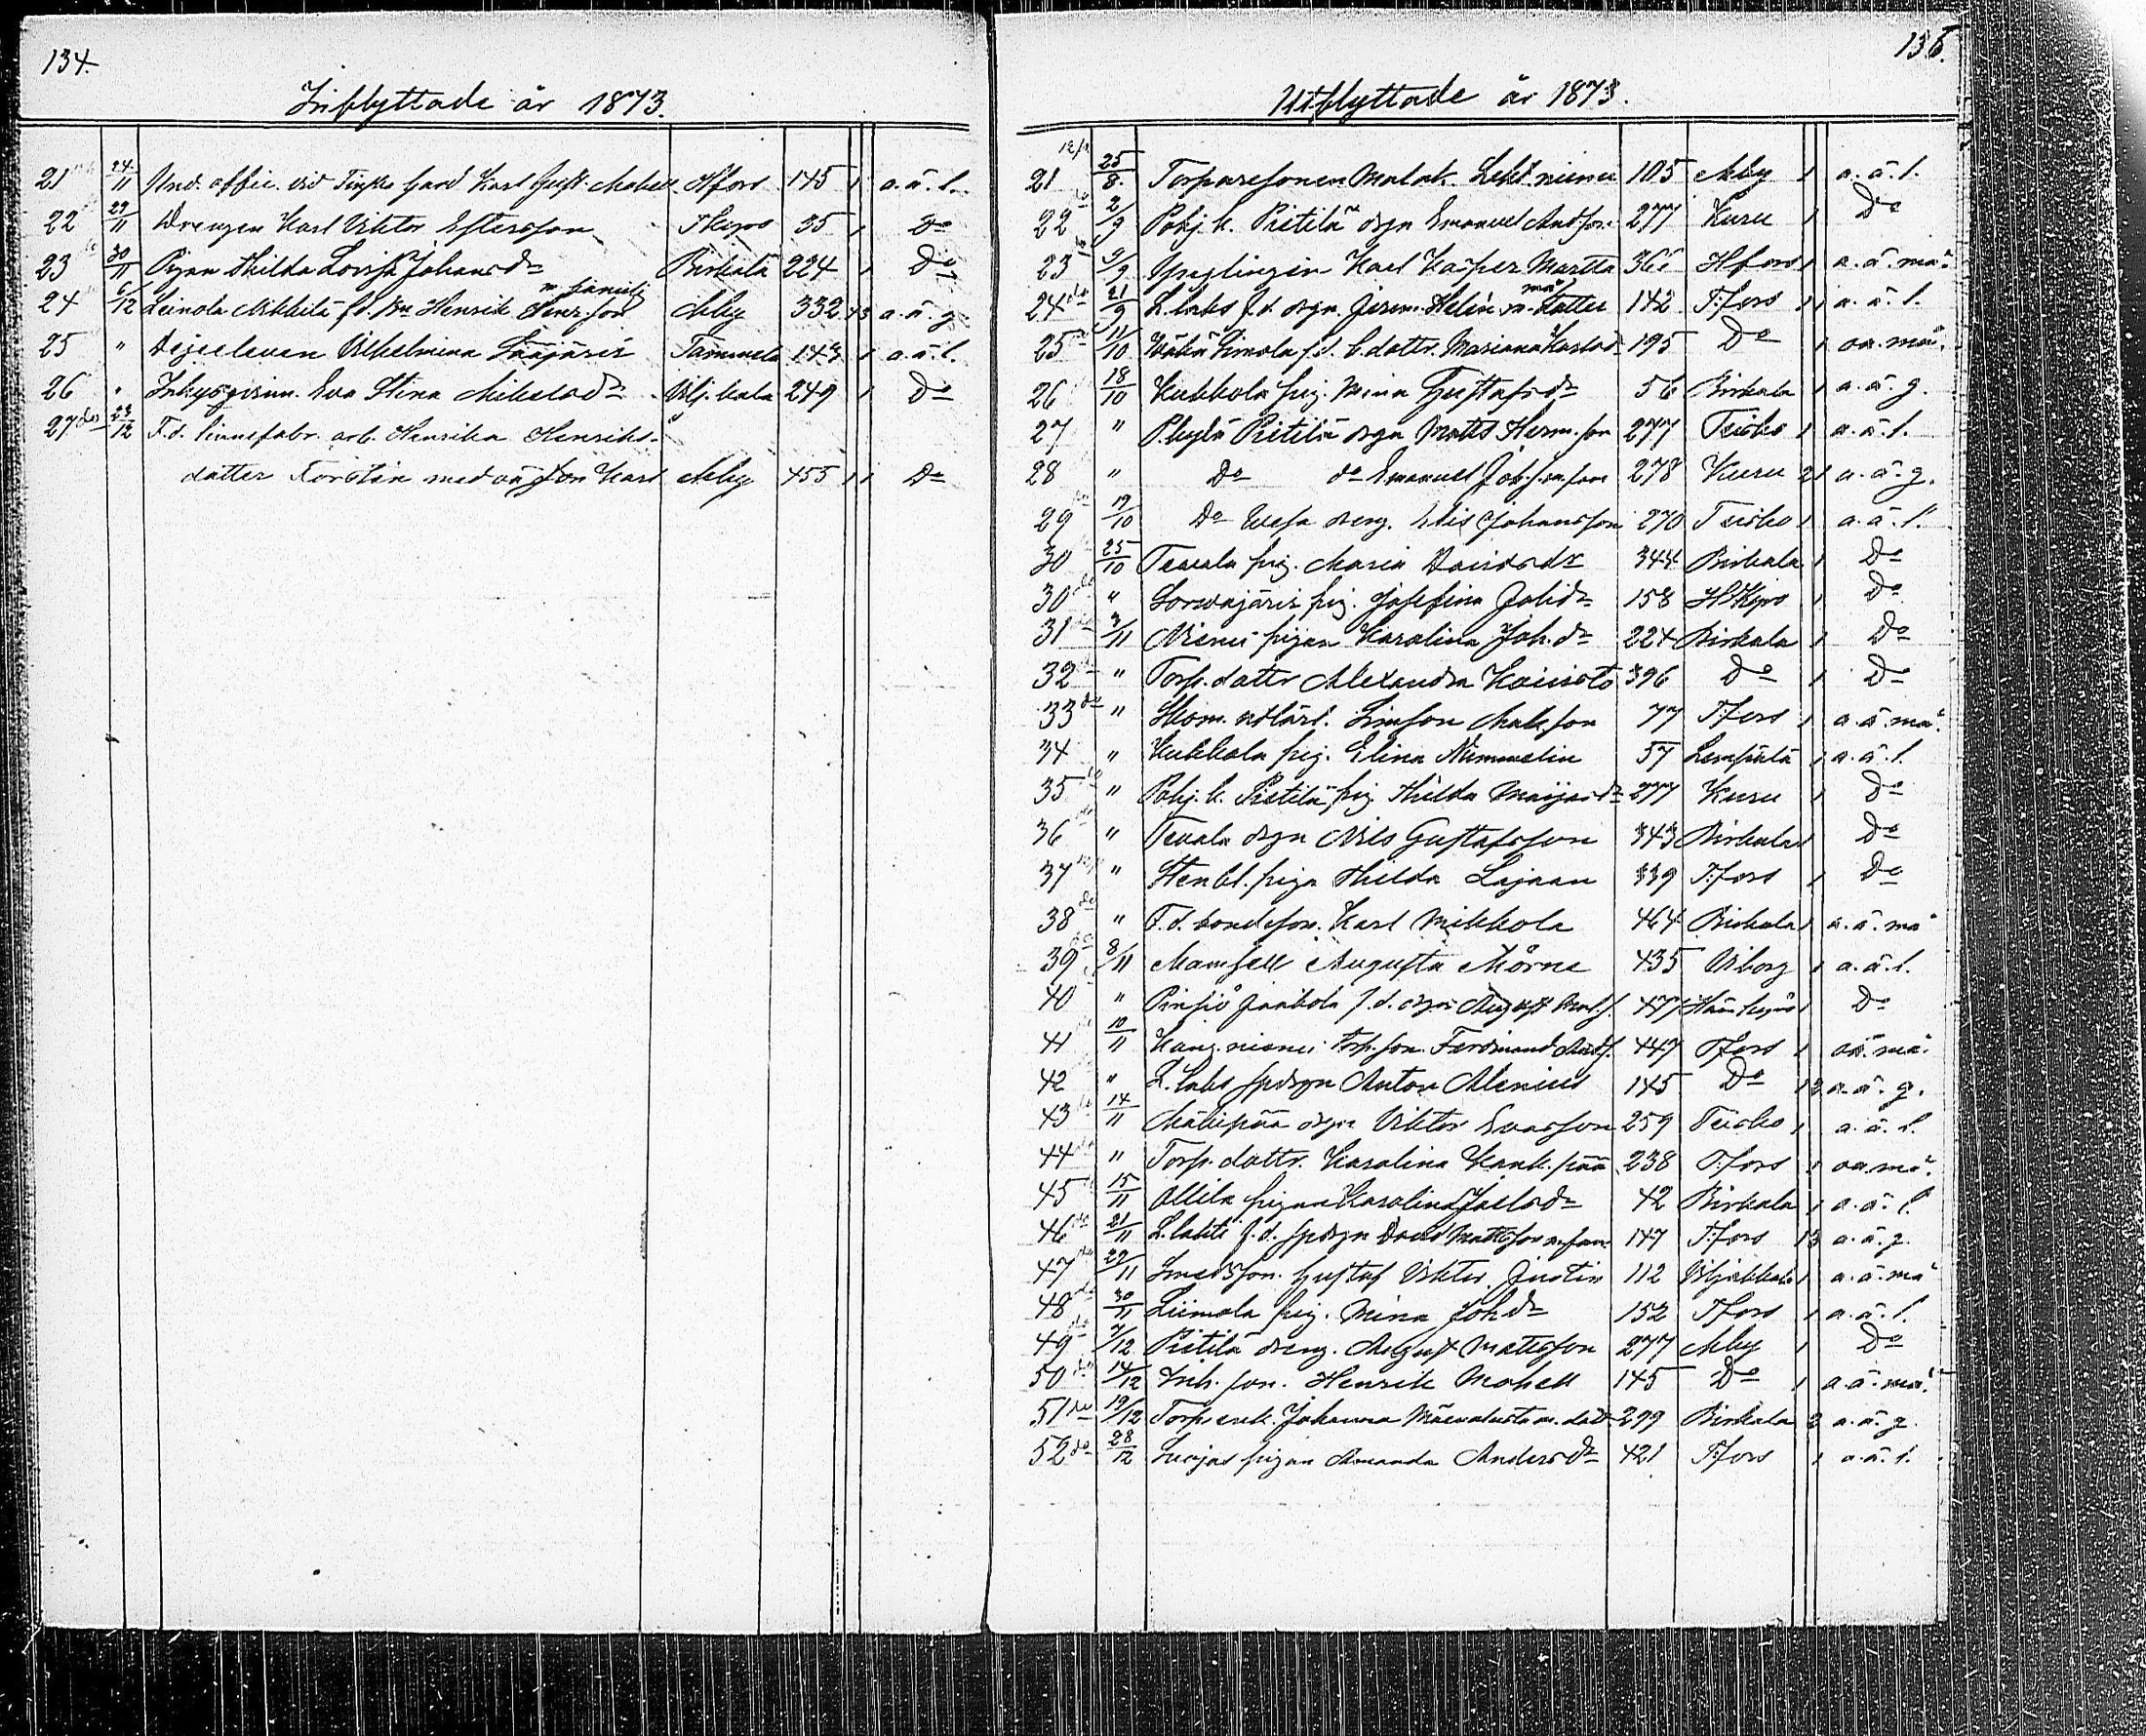 134.
Inflyttade år 1873.
21 24/11 Und. offic. vid Finska Gard Karl Gust. Mohell Hfors 145 1 a.ä.l.
22 29/11 Drengen Karl Viktor Estersson Tkyro 35 1 Do
23 30/11 Pigan Hilda Lovisa Johansdr Birkala 224 1 Do
m. familj
24 6/12 Leinola Mikkilä f.d. Henrik Henr.son Mby 332 a.ä.g.
25 " Dejeeleven Vilhelmina Sääjärvi Tammela 143 1 a.ä.l.
26 " Inhysqvinn. Eva Stina Mikelsdr Vilj.kala 249 1 Do
27 do 23/12 F.d. linnefabr. arb. Henrika Henriks-
datter Forstén med oä son Karl Mby 455 1 1 Do
135.
Utflyttade år 1873.
21 25/8 Torparesonen Malak. niemi 105 Mby 1 a.ä.l.
22 2/9 Pohj.k. Pietilä drgn Emanuel Andson 277 Kuru 1 Do
23 5/9 Ynglingen Karl Kasper Martta 366 Hfors 1 a.ä.må.
24 do 21/9 L.laks f.d. drgn. Jerem. Helin m. datter 142 T:fors 1 1 a.ä.l.
25 11/10 Simola f.d. b.dottr. Mariana Karlsd 195 Do 1 oä.må.
26 18/10 Kukkola pig. Mina Gustafsdr 56 Birkala 1 a.ä.g.
27 " P.kylä Pietilä drgn Matts Herm.son 277 Teisko 1 a.ä.l.
28 " Do do Emanuel Joh. m. fam 278 Kuru 2 1 a.ä.g.
29 19/10 Do Uusa dreng. Elis Johansson 270 Teisko 1 a.ä.l.
30 25/10 Tevala pig. Maria Davidsdr 344 Birkala 1 Do
30 do " Sorvajärvi pig. Josefina Johdr 158 HKyro 1 Do
31 2/11 Niemi pigan Karolina Joh.dr 224 Birkala 1 Do
32 " Torp. dottr Alexandra Koivisto 396 Do 1 Do
33 do " Skom. utlärl. Simson Matsson 77 T:fors 1 a.ä.må.
34 " Kukkola pig. Elina Nummelin 57 Lempäälä 1 a.ä.l.
35 do " Pohj.k. Pietilä pig Hilda Maijasdr 277 Kuru 1 Do
36 " Tevala drgn Nils Gustafsson 343 Birkala 1 Do
37 " Stenbl. piga Hilda Lajaan 339 T:fors 1 Do
38 do " F.d. bondeson. Karl Mikkola 464 Birkala 1 a.ä.må
39 8/11 Mamsell Augusta Mörne 435 Viborg 1 a.ä.l.
40 " Pinsiö Jaakola f.d. drgn August Mat.s. 47 Häm kyrö 1 Do
41 10/11 Kang.niemi torp.son. Ferdinand Ands. 447 T:fors 1 oä.må.
42 " L.laks spdrgn Anton Alenius 145 Do 1 3 a.ä.g.
43 14/11 Mälkipää drgn Viktor Evasson 259 Teisko 1 a.ä.l.
44 do " Torp. dottr. Karolina Kank.pää 238 T:fors 1 oä.må.
45 15/11 Ollila pigan Karolina Joelsdr 42 Birkala 1 a.ä.l.
46 do 21/11 L.lahti f.d. spdrgn David Mattsson m.fam. 147 T:fors 1 3 a.ä.g.
47 do 29/11 Smedsson. Gustaf Viktor Justin 112 Viljakkala 1 a.ä.må
48 do 30/11 Liimola pig. Mina Johdr 152 T:fors 1 a.ä.l.
49 do 7/12 Pietilä dreng. August Mattsson 277 Mby 1 Do
50 do 14/12 Inh. son. Henrik Mohell 145 Do 1 a.ä.må.
51 do 19/12 Torp. enk. Johanna m. dott 299 Birkala 2 a.ä.g.
52 do 28/12 Suojas pigan Amanda Andersdr 421 T:fors 1 a.ä.l.